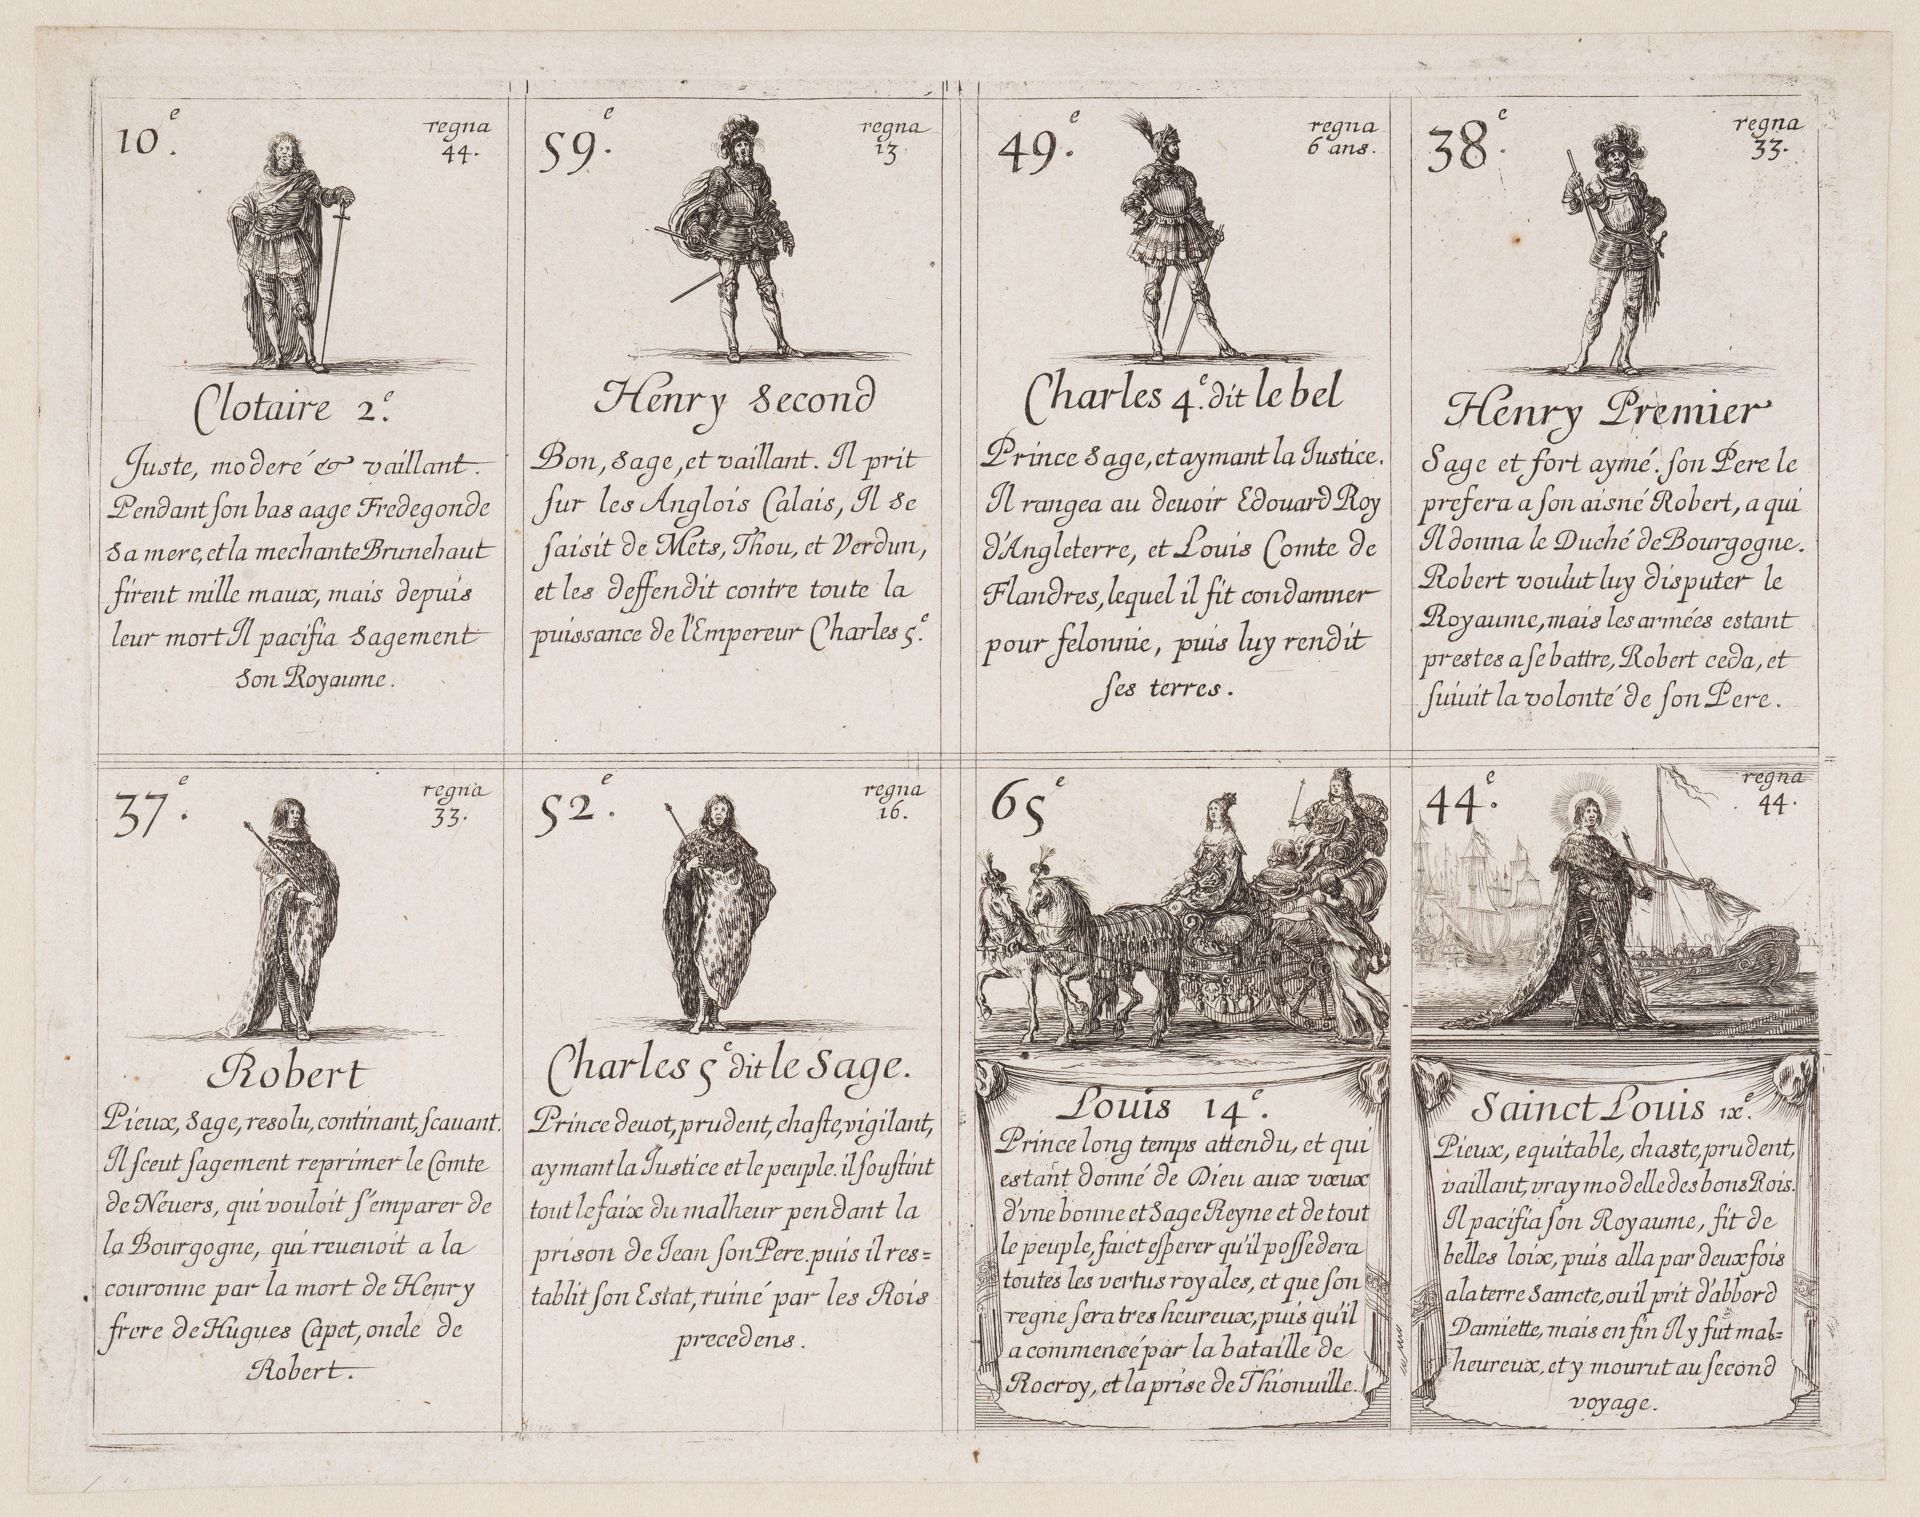 10.e
regna
44.
Clotaire 2.e
Juste, moderé & vaillant.
Pendant son bas aage Fredegonde
sa mere, et la mechante Brunehaut
firent mille maux, mais depuis
leur mort Il pacifia sagement
son Royaume.
59.e
regna
13
Henry second
Bon, sage, et vaillant. Il prit
sur les Anglois Calais, Il se
saisit de Mets, Thou, et Verdun,
et les deffendit contre toute la
puissance de l'Empereur Charles 5.e
49.e
regna
6 ans.
Charles 4.e dit le bel
Prince sage, et aymant la Justice.
Il rangea au devoir Edouard Roy
d'Angleterre, et Louis Comte de
Flandres, lequel il fit condamner
pour felonnie, puis luy rendit
ses terres.
38.e
regna
33.
Henry Premier
Sage et fort aymé. son Pere le
prefera a son aisné Robert, a qui
Il donna le Duché de Bourgogne.
Robert voulut luy disputer le
Royaume, mais les armées estant
prestes a se battre, Robert ceda, et
suiuit la volonté de son Pere.
37.e
regna
33.
Robert
Pieux, sage, resolu, continant, scauant.
Il sceut sagement reprimer le Comte
de Neuers, qui vouloit s'emparer de
la Bourgogne, qui reuenoit a la
couronne par la mort de Henry
frere de Hugues Capet, oncle de
Robert.
52.e
regna
16.
Charles 5e dit le sage.
Prince deuot, prudent, chaste, vigilant,
aymant la Justice et le peuple. il soustint
tout le faix du malheur pendant la
prison de Jean son Pere. puis il res=
tablit son Estat, ruiné par les Rois
precedens.
65e
Louis 14e.
Prince long temps attendu, et qui
estant donné de Dieu aux vœux
d'vne bonne et sage Reyne et de tout
le peuple, faict esperer qu'il possedera
toutes les vertus royales, et que son
regne sera tres heureux, puis qu'il
a commencé par la bataille de
Rocroy, et la prise de Thionuille.
44.e
regna
44.
Sainct Louis ixe.
Pieux, equitable, chaste, prudent,
vaillant, vray modelle des bons Rois.
Il pacifia son Royaume, fit de
belles loix, puis alla par deux fois
a la terre Saincte, ou il prit d'abbord
Damiette, mais en fin Il y fut mal=
heureux, et y mourut au second
voyage.